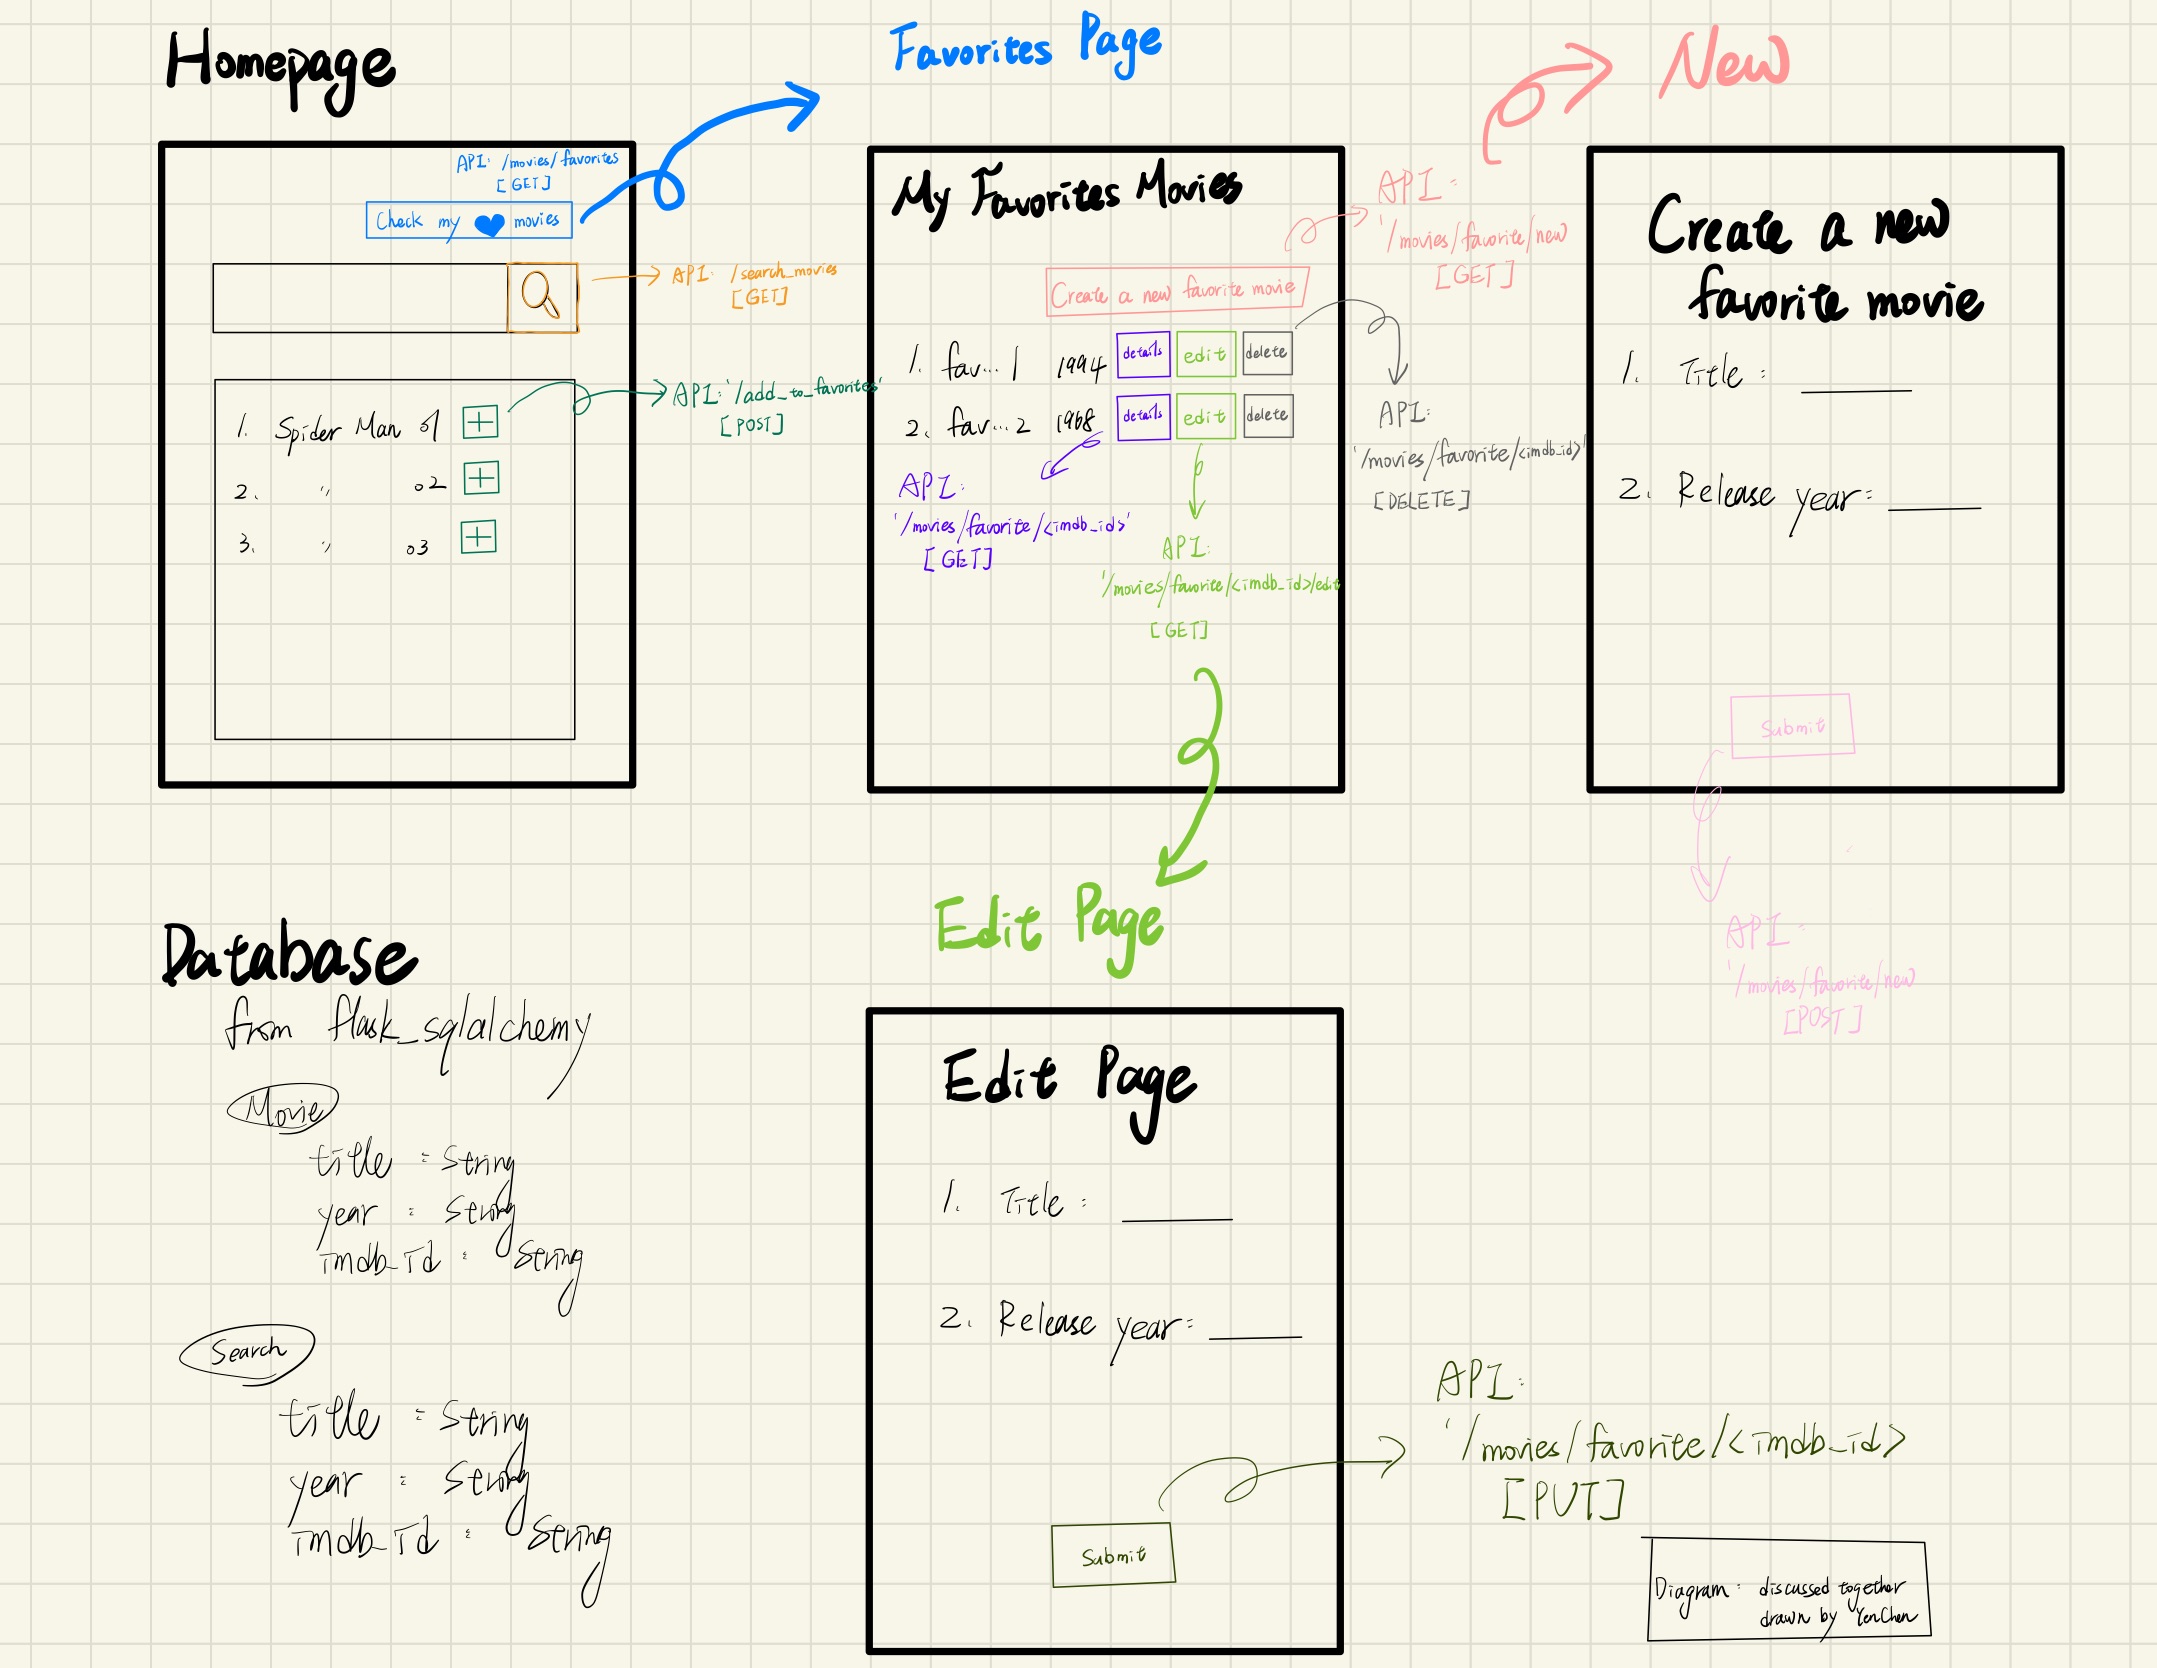 Homepage
API: /movies/favorites
[GET]
Check my ♥ movies
API: /search_movies
[GET]
1. Spider Man 01
2. 〃 02
3. 〃 03
API: '/add_to_favorites'
[POST]
Favorites Page
My Favorites Movies
Create a new favorite movie
1. fav... 1 1994 details edit delete
2. fav... 2 1968 details edit delete
API:
'/movies/favorite/<imdb_id>'
[GET]
API:
'/movies/favorite/<imdb_id>/edit
[GET]
API:
'/movies/favorite/new
[GET]
API:
'/movies/favorite/<imdb_id>'
[DELETE]
New
Create a new
favorite movie
1. Title :
2. Release year:
Submit
API:
'/movies/favorite/new
[POST]
Database
from flask_sqlalchemy
Movie
title : String
year : String
imdb_id : String
Search
title : String
year : String
imdb_id : String
Edit Page
Edit Page
1. Title :
2. Release year:
Submit
API:
'/movies/favorite/<imdb_id>
[PUT]
Diagram: discussed together
drawn by YenChen